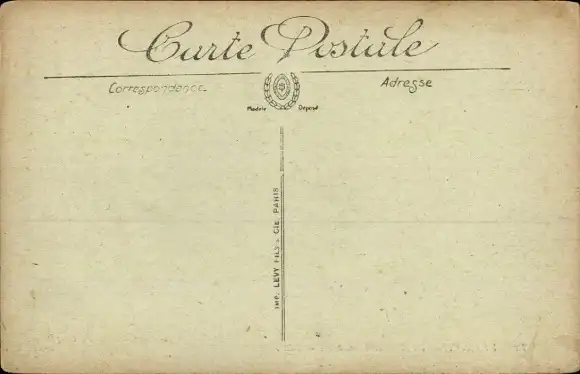 Carte Postale
Correspondance
Adresse
Modèle Déposé
IMP. LEVY FILS & CIE. PARIS